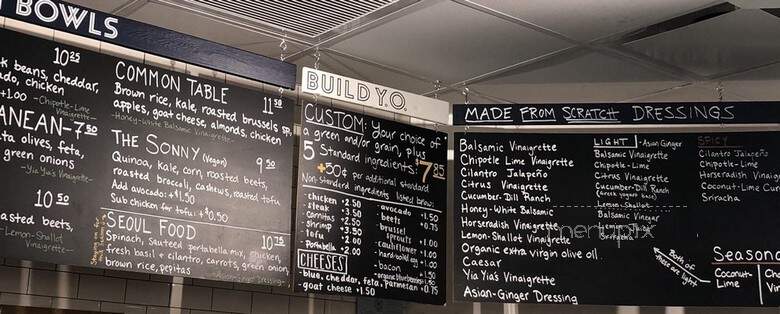 BOWLS
10 25
k beans, cheddar,
ado, chicken
+1.00 -Chipotle-Lime
Vinaigrette-
ANEAN-7 50
ata olives, feta,
green onions
-Yia Yia's Vinaigrette-
10 50
asted beets,
-Lemon-Shallot
Vinaigrette-
COMMON TABLE 11 50
Brown rice, kale, roasted brussels sp,
apples, goat cheese, almonds, chicken
-Honey-White Balsamic Vinaigrette-
THE SONNY (Vegan) 9 50
Quinoa, kale, corn, roasted beets,
roasted broccoli, cashews, roasted tofu
Add avocado: +$1.50
Sub chicken for tofu: +$0.50
SEOUL FOOD 10 75
Spinach, sauteed portabella mix, chicken,
fresh basil + cilantro, carrots, green onion,
brown rice, pepitas
-Asian-Ginger Dressing-
BUILD Y.O.
CUSTOM: Your choice of
a green and/or grain, plus
5 Standard ingredients: 7 85
+50¢ per additional standard
Non-Standard ingredients listed below:
-chicken +2.50
-steak +3.50
-carnitas +2.50
-shrimp +3.50
-tofu +2.00
-Portabella +2.00
-avocado +1.50
-beets +0.75
-brussel
sprouts
-cauliflower
-hard-boiled egg
-bacon
-organic blueberries
CHEESES
-blue, cheddar, feta, parmesan +0.75
-goat cheese +1.50
MADE FROM SCRATCH DRESSINGS
Balsamic Vinaigrette
Chipotle Lime Vinaigrette
Cilantro Jalapeño
Citrus Vinaigrette
Cucumber-Dill Ranch
Honey-White Balsamic
Horseradish Vinaigrette
Lemon-Shallot Vinaigrette
Organic extra virgin olive oil
Caesar
Yia Yia's Vinaigrette
Asian-Ginger Dressing
LIGHT -Asian Ginger
Balsamic Vinaigrette
Chipotle-Lime
Citrus Vinaigrette
Cucumber-Dill Ranch
(Greek yogurt base)
Lemon-Shallot
Balsamic Vinegar
SPICY
Cilantro Jalapeño
Chipotle-Lime
Horseradish Vinaigr
Coconut-Lime Cu
Sriracha
Both of
these are light
Seasona
Coconut-
Lime
menupix